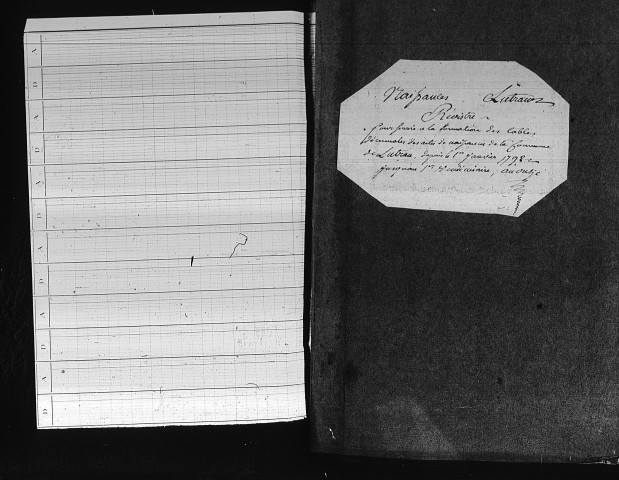 A
D
A
D
A
D
A
D
A
D
A
D
Naissances Lutran
Registre
Pour servir a la formation des tables
Décennales des actes de naissances de la Commune
de Lutran, depuis le 1er Janvier 1793
jusqu'au 1er Vendémiaire, an onze